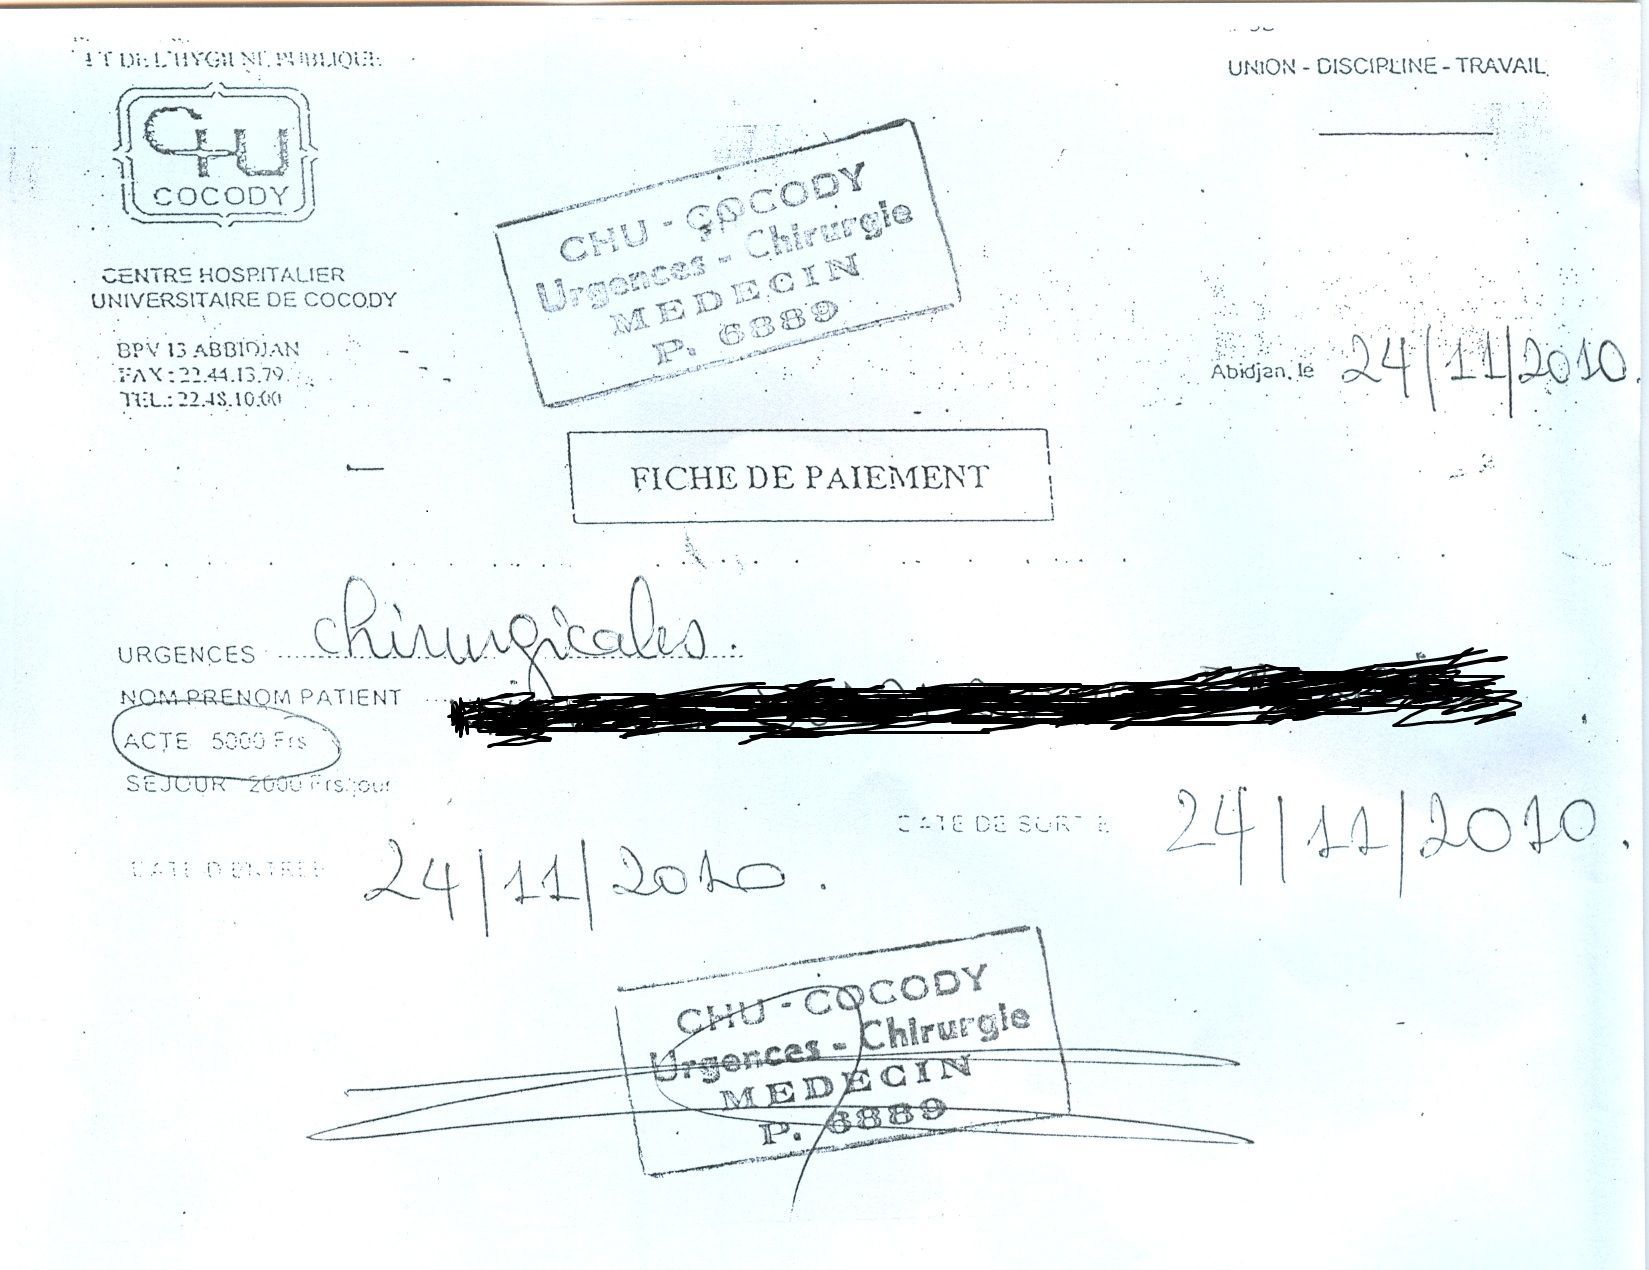 ET DE L'HYGIENE PUBLIQUE
UNION - DISCIPLINE - TRAVAIL
CHU
COCODY
CHU - COCODY
Urgences - Chirurgie
MEDECIN
P. 6889
CENTRE HOSPITALIER
UNIVERSITAIRE DE COCODY
BPV 13 ABBIDJAN
FAX : 22.44.13.79
TEL.: 22.48.10.00
Abidjan, le 24/11/2010.
FICHE DE PAIEMENT
URGENCES chirurgicales.
NOM PRENOM PATIENT
ACTE 5000 Frs
SEJOUR 2000 Frs/jour
DATE DE SORTIE 24/11/2010.
DATE D'ENTREE 24/11/2010.
CHU - COCODY
Urgences - Chirurgie
MEDECIN
P. 6889